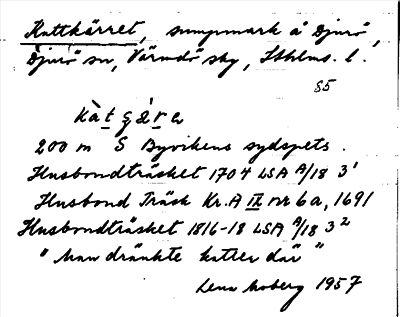 Kattkärret, sumpmark å Djurö,
Djurö sn, Värmdö skg, Sthlms. l.
85
kàtçä̀ra
200 m S Byvikens sydspets.
Husbondträsket 1704 LSA A/18 3¹
Husbond Träsk Kr.A IX nr 6a, 1691
Husbondträsket 1816-18 LSA A/18 3²
"Man dränkte katter där"
Lena Moberg 1957